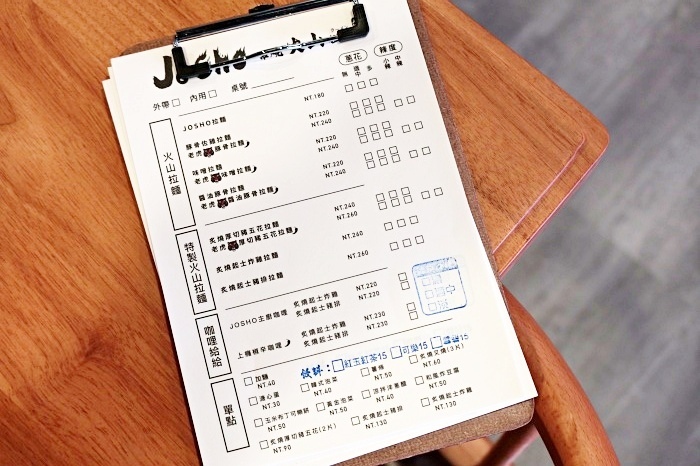 JOSHO
外帶 內用 桌號
蔥花 辣度
無 適中 多 小辣 中辣
火山拉麵
JOSHO拉麵 NT.180
豚骨佐雞拉麵 NT.220
老虎豚骨拉麵 NT.240
味噌拉麵 NT.220
老虎味噌拉麵 NT.240
醬油豚骨拉麵 NT.220
老虎醬油豚骨拉麵 NT.240
特製火山拉麵
炙燒厚切豬五花拉麵 NT.240
老虎厚切豬五花拉麵 NT.260
炙燒起士炸雞拉麵 NT.240
炙燒起士豬排拉麵 NT.260
咖哩給給
JOSHO主廚咖哩 炙燒起士炸雞 NT.220
炙燒起士豬排 NT.220
上癮椒辛咖哩 炙燒起士炸雞 NT.230
炙燒起士豬排 NT.230
飲料: 紅玉紅茶15 可樂15 雪碧15
單點
加麵 NT.40
韓式泡菜 NT.40
薯條 NT.50
炙燒叉燒(3片) NT.60
溏心蛋 NT.30
黃金泡菜 NT.50
涼拌洋蔥麵 NT.40
和風炸豆腐 NT.50
玉米布丁可樂餅 NT.50
炙燒起士豬排 NT.130
炙燒起士炸雞 NT.130
炙燒厚切豬五花(2片) NT.90